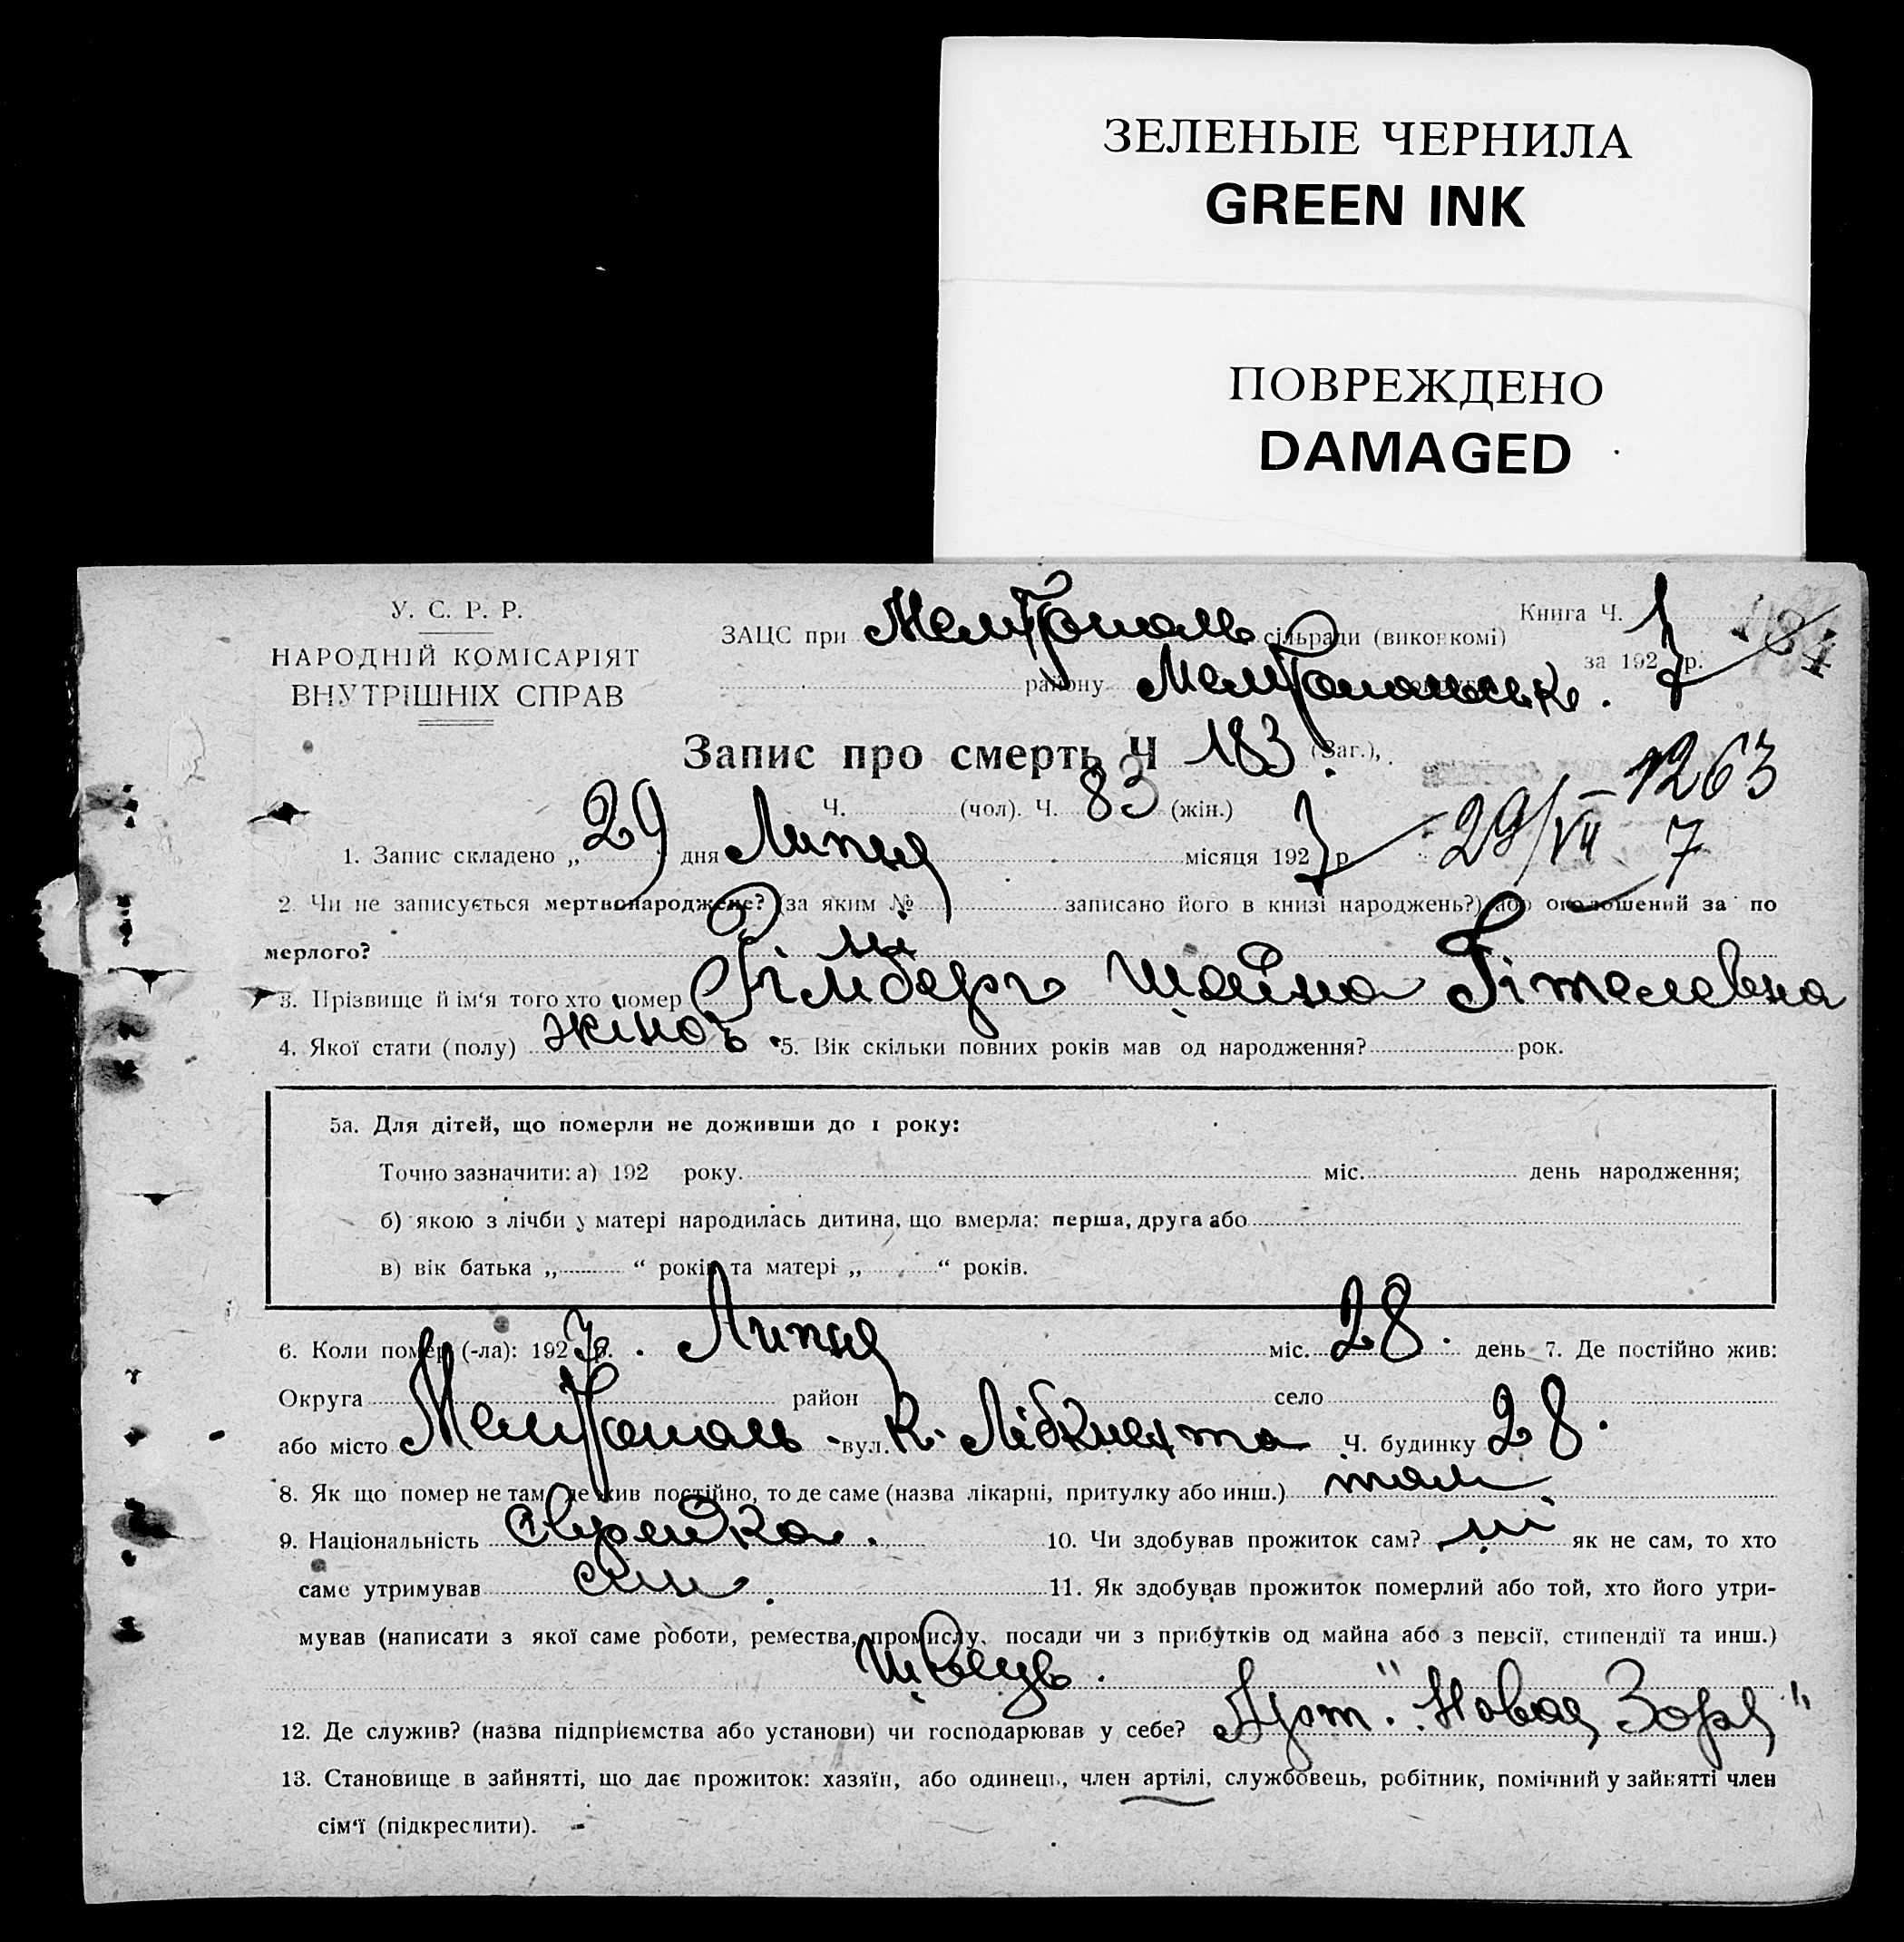 ЗЕЛЕНЫЕ ЧЕРНИЛА
GREEN INK
ПОВРЕЖДЕНО
DAMAGED
У. С. Р. Р.
НАРОДНІЙ КОМІСАРІЯТ
ВНУТРІШНІХ СПРАВ
ЗАЦС при Мелітополь сільради (виконкомі)
району Мелітопольськ.
Книга Ч. 7
за 1927 р.
184
Запис про смерть Ч 183 (Заг.),
Ч. (чол). Ч. 83 (жін.)
1263
29/VII 7
1. Запис складено „ 29 дня Липня місяця 1927 р
2. Чи не записується мертвонароджене? (за яким № записано його в книзі народжень?) або оголошений за по
мерлого? ні
3. Прізвище й ім'я того хто помер Гімберг Шейна Гітелевна
4. Якої стати (полу) жіноч. 5. Вік скільки повних років мав од народження? рок.
5а. Для дітей, що померли не доживши до 1 року:
Точно зазначити: а) 192 року. міс. день народження;
б) якою з лічби у матері народилась дитина, що вмерла: перша, друга або
в) вік батька „ “ років та матері „ “ років.
6. Коли помер (-ла): 1927 р. Липня міс. 28. день 7. Де постійно жив:
Округа район село
або місто Мелітополь вул. К. Лібкнехта Ч. будинку 28.
8. Як що помер не там, де жив постійно, то де саме (назва лікарні, притулку або инш.) там.
9. Національність Єврейка. 10. Чи здобував прожиток сам? ні як не сам, то хто
саме утримував син. 11. Як здобував прожиток померлий або той, хто його утри-
мував (написати з якої саме роботи, ремества, промислу, посади чи з прибутків од майна або з пенсії, стипендії та инш.)
Швець.
12. Де служив? (назва підприємства або установи) чи господарював у себе? Арт. "Новая Зоря"
13. Становище в зайнятті, що дає прожиток: хазяїн, або одинець, член артілі, службовець, робітник, помічний у зайнятті член
сім'ї (підкреслити).